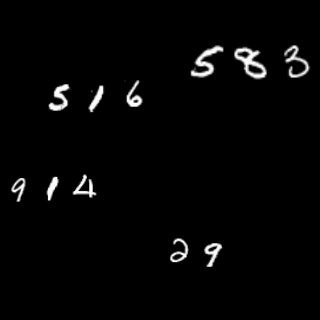 583
516
914
29